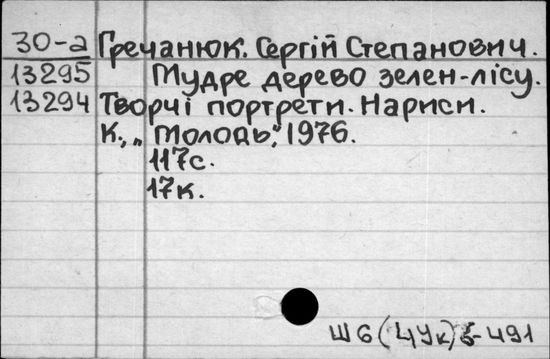 30-а Гречанюк. Сергій Степанович.
13295 Мудре дерево зелен-лісу.
13294 Творчі портрети. Нариси.
К., „Молодь", 1976.
117с.
17к.
Ш6(4Ук)5-491